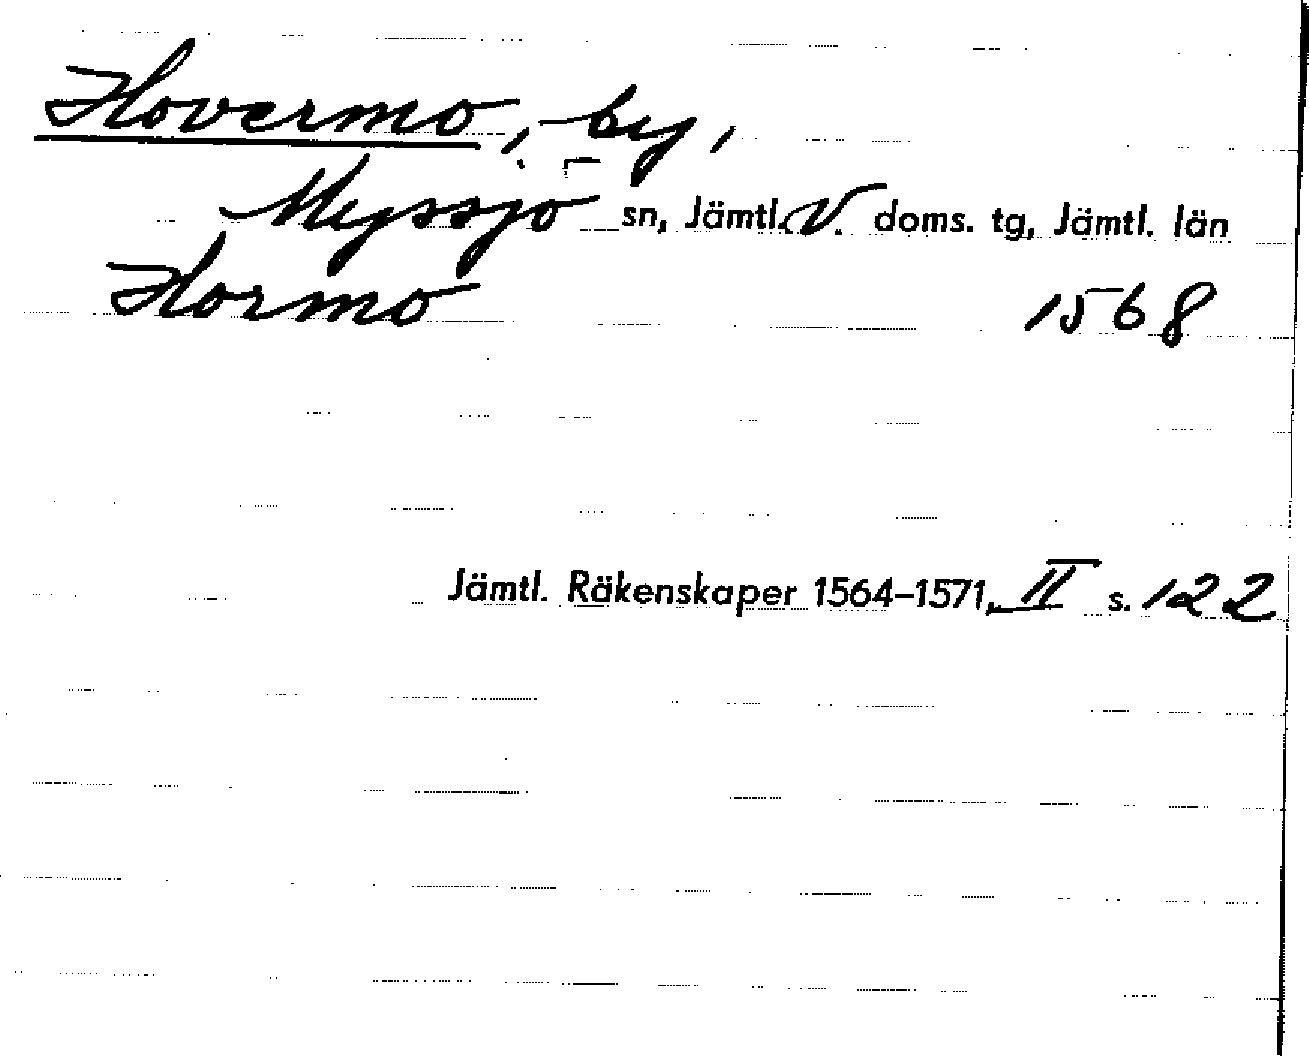 Hovermo, by,
Myssjo sn, Jämtl. V. doms. tg, Jämtl. län
Hormo 1568
Jämtl. Räkenskaper 1564–1571, II s. 122